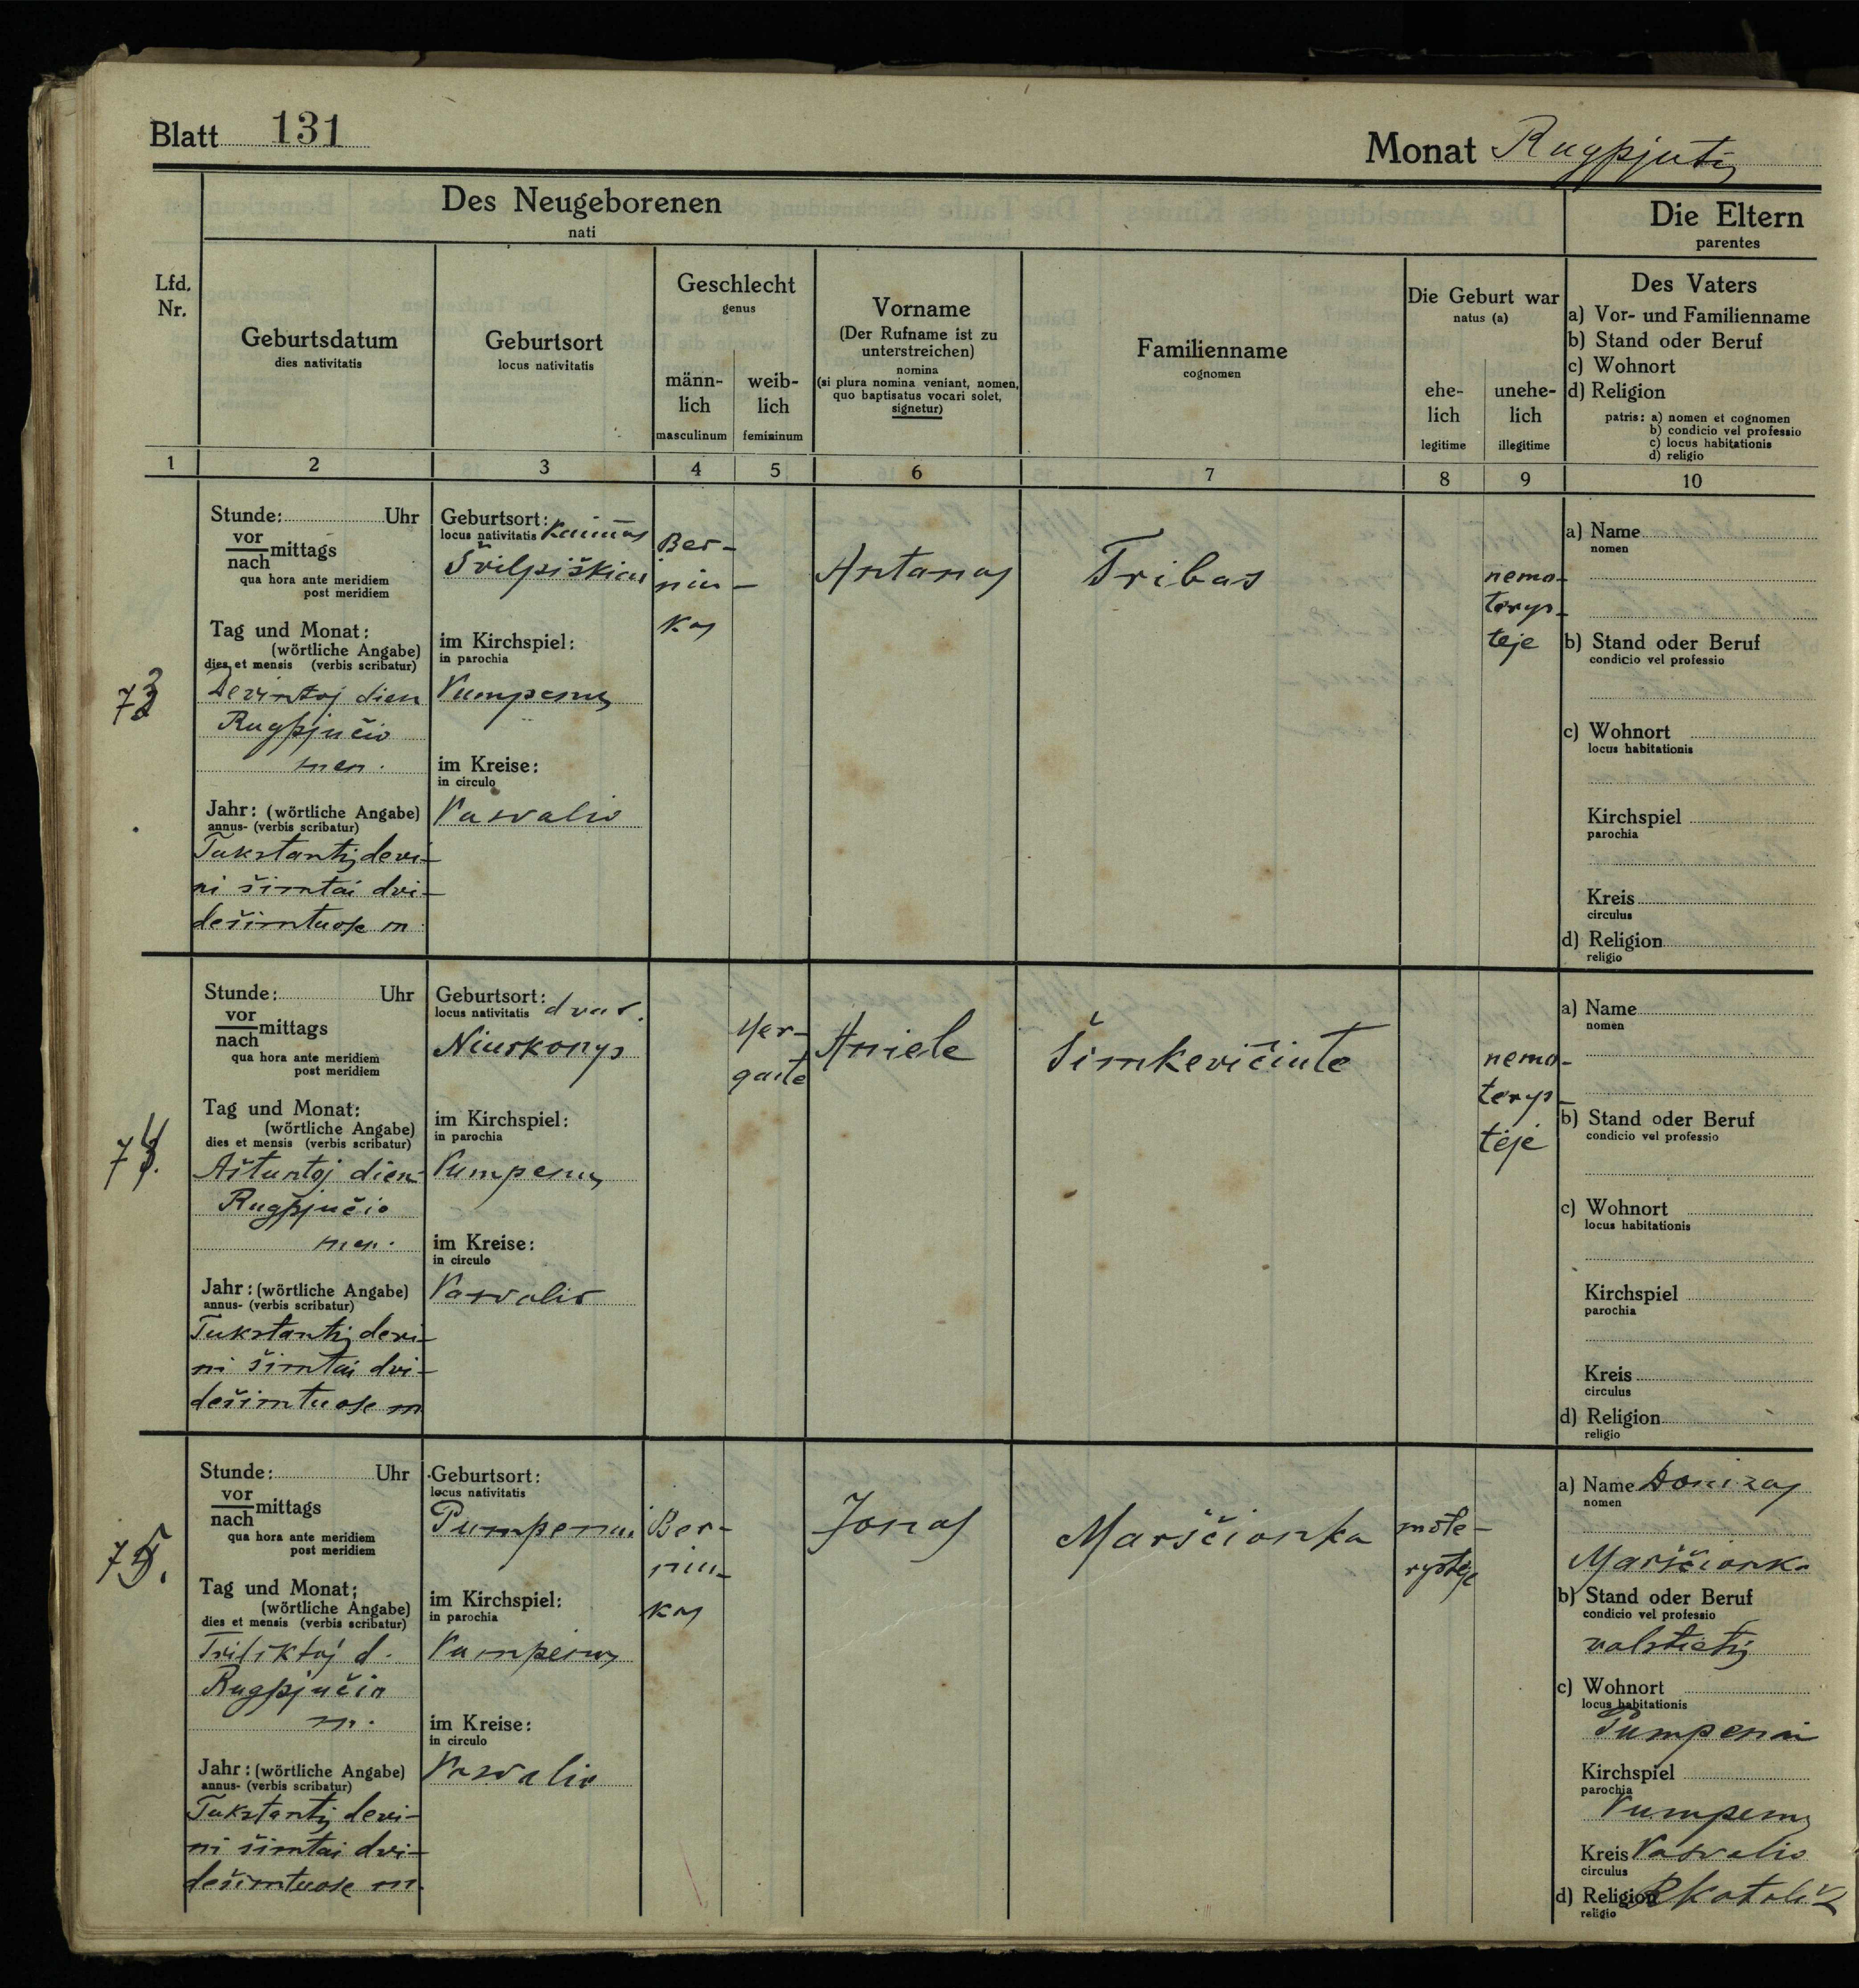 Blatt 131
Monat Rugpjutis
Des Neugeborenen
nati
Die Eltern
parentes
Lfd.
Nr.
Geburtsdatum
dies nativitatis
Geburtsort
locus nativitatis
Geschlecht
genus
männ-
lich
masculinum
weib-
lich
femininum
Vorname
(Der Rufname ist zu
unterstreichen)
nomina
(si plura nomina veniant, nomen,
quo baptisatus vocari solet,
signetur)
Familienname
cognomen
Die Geburt war
natus (a)
ehe-
lich
legitime
unehe-
lich
illegitime
Des Vaters
a) Vor- und Familienname
b) Stand oder Beruf
c) Wohnort
d) Religion
patris: a) nomen et cognomen
b) condicio vel professio
c) locus habitationis
d) religio
1 2 3 4 5 6 7 8 9 10
73
Stunde: Uhr
vor
nach mittags
qua hora ante meridiem
post meridiem
Tag und Monat:
(wörtliche Angabe)
dies et mensis (verbis scribatur)
Devintoj dien
Rugpjučio
men.
Jahr: (wörtliche Angabe)
annus- (verbis scribatur)
Tukstantis devi-
ni šimtai dvi-
dešimtuose m
Geburtsort:
locus nativitatis Kaimas
Švilpiškiai
im Kirchspiel:
in parochia
Pumpenų
im Kreise:
in circulo
Pasvalio
Ber-
niu-
kas
Antanas
Tribas
nemo-
terys-
teje
a) Name
nomen
b) Stand oder Beruf
condicio vel professio
c) Wohnort
locus habitationis
Kirchspiel
parochia
Kreis
circulus
d) Religion
religio
74.
Stunde: Uhr
vor
nach mittags
qua hora ante meridiem
post meridiem
Tag und Monat:
(wörtliche Angabe)
dies et mensis (verbis scribatur)
Aštuntoj dien
Rugpjučio
men.
Jahr: (wörtliche Angabe)
annus- (verbis scribatur)
Tukstantis devi-
ni šimtai dvi-
dešimtuose m
Geburtsort:
locus nativitatis dvar.
Niurkonys
im Kirchspiel:
in parochia
Pumpenų
im Kreise:
in circulo
Pasvalio
Mer-
gaite
Aniele
Šimkevičiute
nemo-
terys-
tėje
a) Name
nomen
b) Stand oder Beruf
condicio vel professio
c) Wohnort
locus habitationis
Kirchspiel
parochia
Kreis
circulus
d) Religion
religio
75.
Stunde: Uhr
vor
nach mittags
qua hora ante meridiem
post meridiem
Tag und Monat:
(wörtliche Angabe)
dies et mensis (verbis scribatur)
Triliktoj d.
Rugpjučio
m.
Jahr: (wörtliche Angabe)
annus- (verbis scribatur)
Tukstantis devi-
ni šimtai dvi-
dešimtuose m.
Geburtsort:
locus nativitatis
Pumpenai
im Kirchspiel:
in parochia
Pumpenų
im Kreise:
in circulo
Pasvalio
Ber-
niu-
kas
Jonas
Marščionka
mote-
rystėje
a) Name
nomen
Marščionka
b) Stand oder Beruf
condicio vel professio
valstietis
c) Wohnort
locus habitationis
Pumpenai
Kirchspiel
parochia
Pumpenų
Kreis Pasvalio
circulus
d) Religion R Katalik
religio